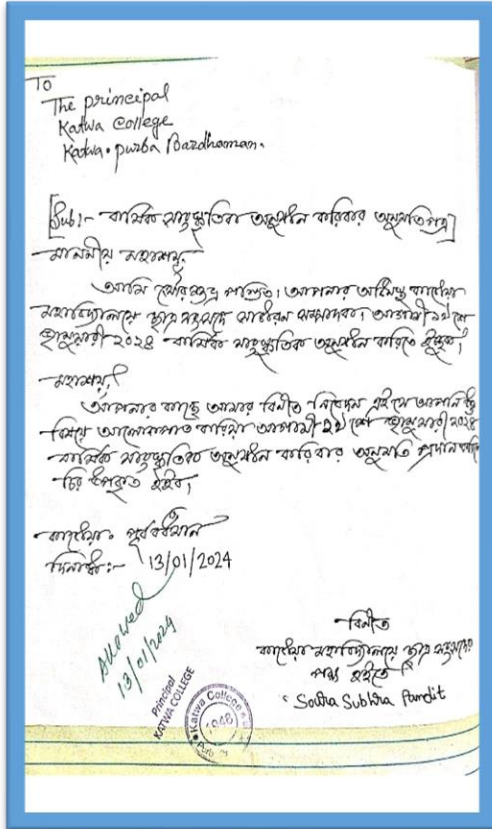 To
The principal
Katwa College
Katwa. purba Bardhaman.
[Sub:- বার্ষিক সাংস্কৃতিক অনুষ্ঠান করিবার অনুমতিপত্র]
মাননীয় মহাশয়,
আমি সৌরশুভ্র পন্ডিত। আপনার অধীনস্থ কাটোয়া
মহাবিদ্যালয়ে ছাত্র সংসদে সাধারন সম্পাদক। আগামী
জানুয়ারী ২০২৪ বার্ষিক সাংস্কৃতিক অনুষ্ঠান করিতে ইচ্ছুক।
মহাশয়,
আপনার কাছে আমার বিনীত নিবেদন এই যে আপনি
বিষয়ে আলোকপাত করিয়া আগামী জানুয়ারী ২০২৪
বার্ষিক সাংস্কৃতিক অনুষ্ঠান করিবার অনুমতি প্রদান
চির উপকৃত হইব।
কাটোয়া. পূর্ব বর্ধমান
দিনাঙ্ক:- 13/01/2024
Allowed
13/01/2024
Principal
KATWA COLLEGE
Katwa College
1948
বিনীত
কাটোয়া মহাবিদ্যালয়ে ছাত্র সংসদের
পক্ষ হইতে
Soura Subhra Pandit